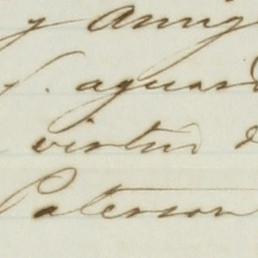 y Amig
S. aguard
virtud d
Paterson